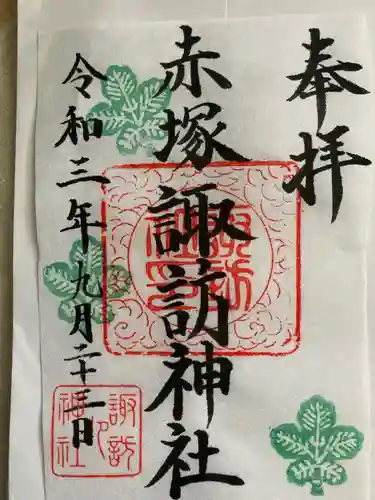 奉拝
赤塚諏訪神社
令和三年九月二十三日
諏訪
神社